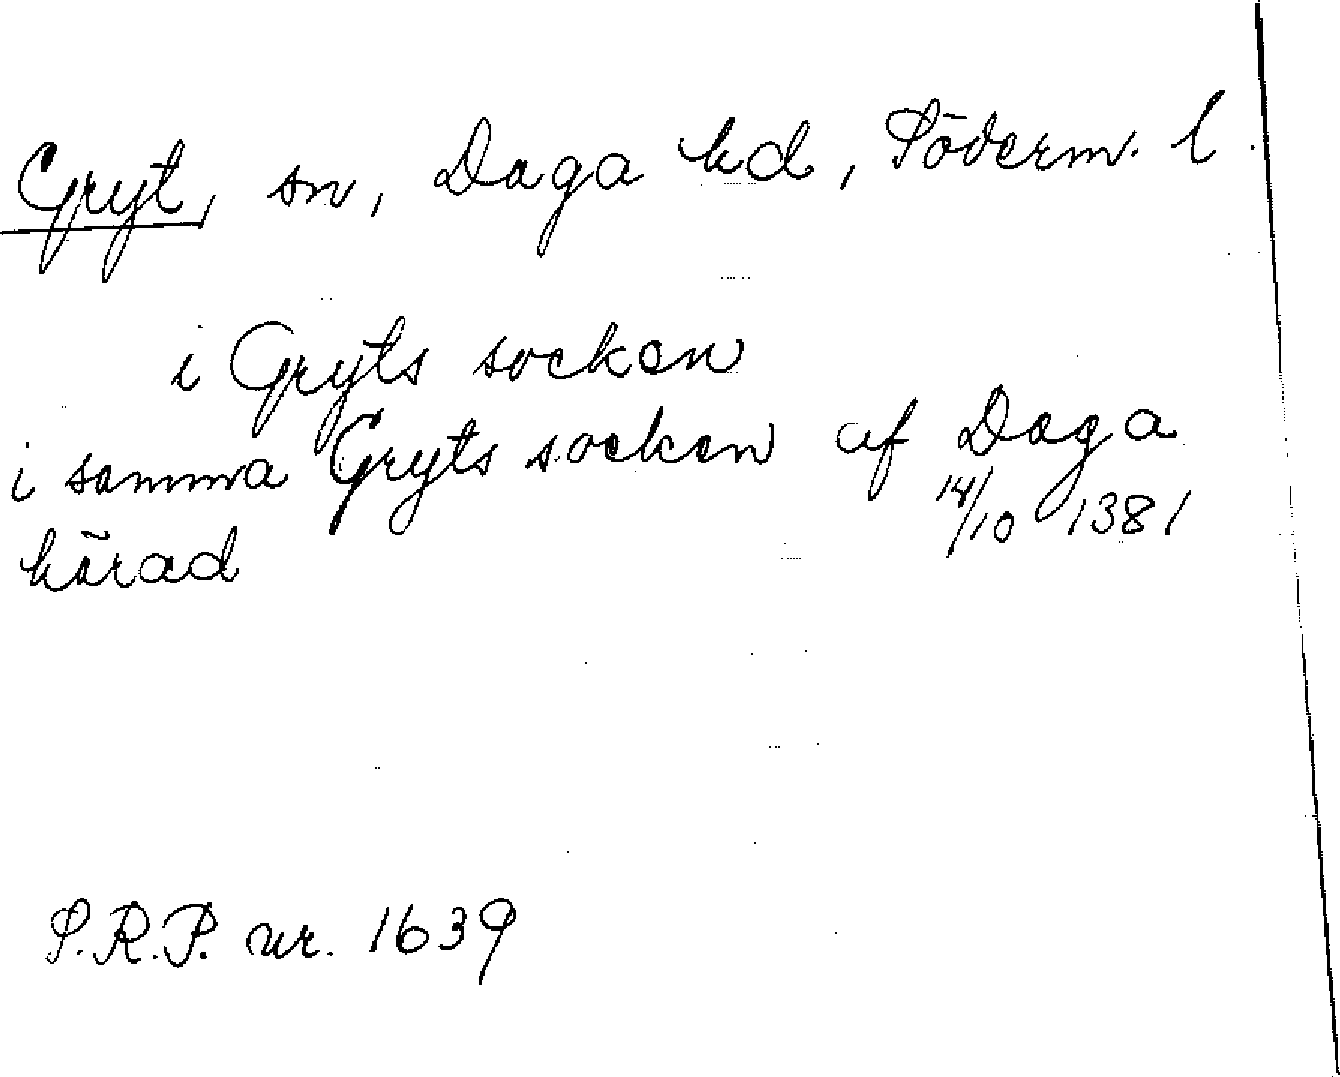 Gryt, sn, Daga hd, Söderm. l.
i Gryts socken
i samma Gryts socken af Daga
härad 14/10 1381
S.R.P. nr. 1639